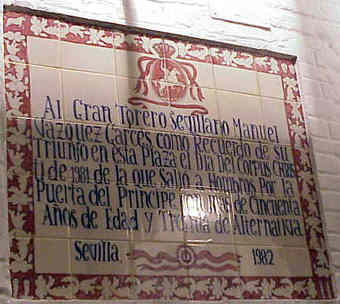 Al Gran Torero Sevillano Manuel
Vazquez Garces como Recuerdo de su
Triunfo en esta Plaza el Dia del Corpus Chris
ti de 1981 de la que Salio a Hombros Por la
Puerta del Principe con mas de Cincuenta
Años de Edad y Treinta de Alternativa
Sevilla 1982